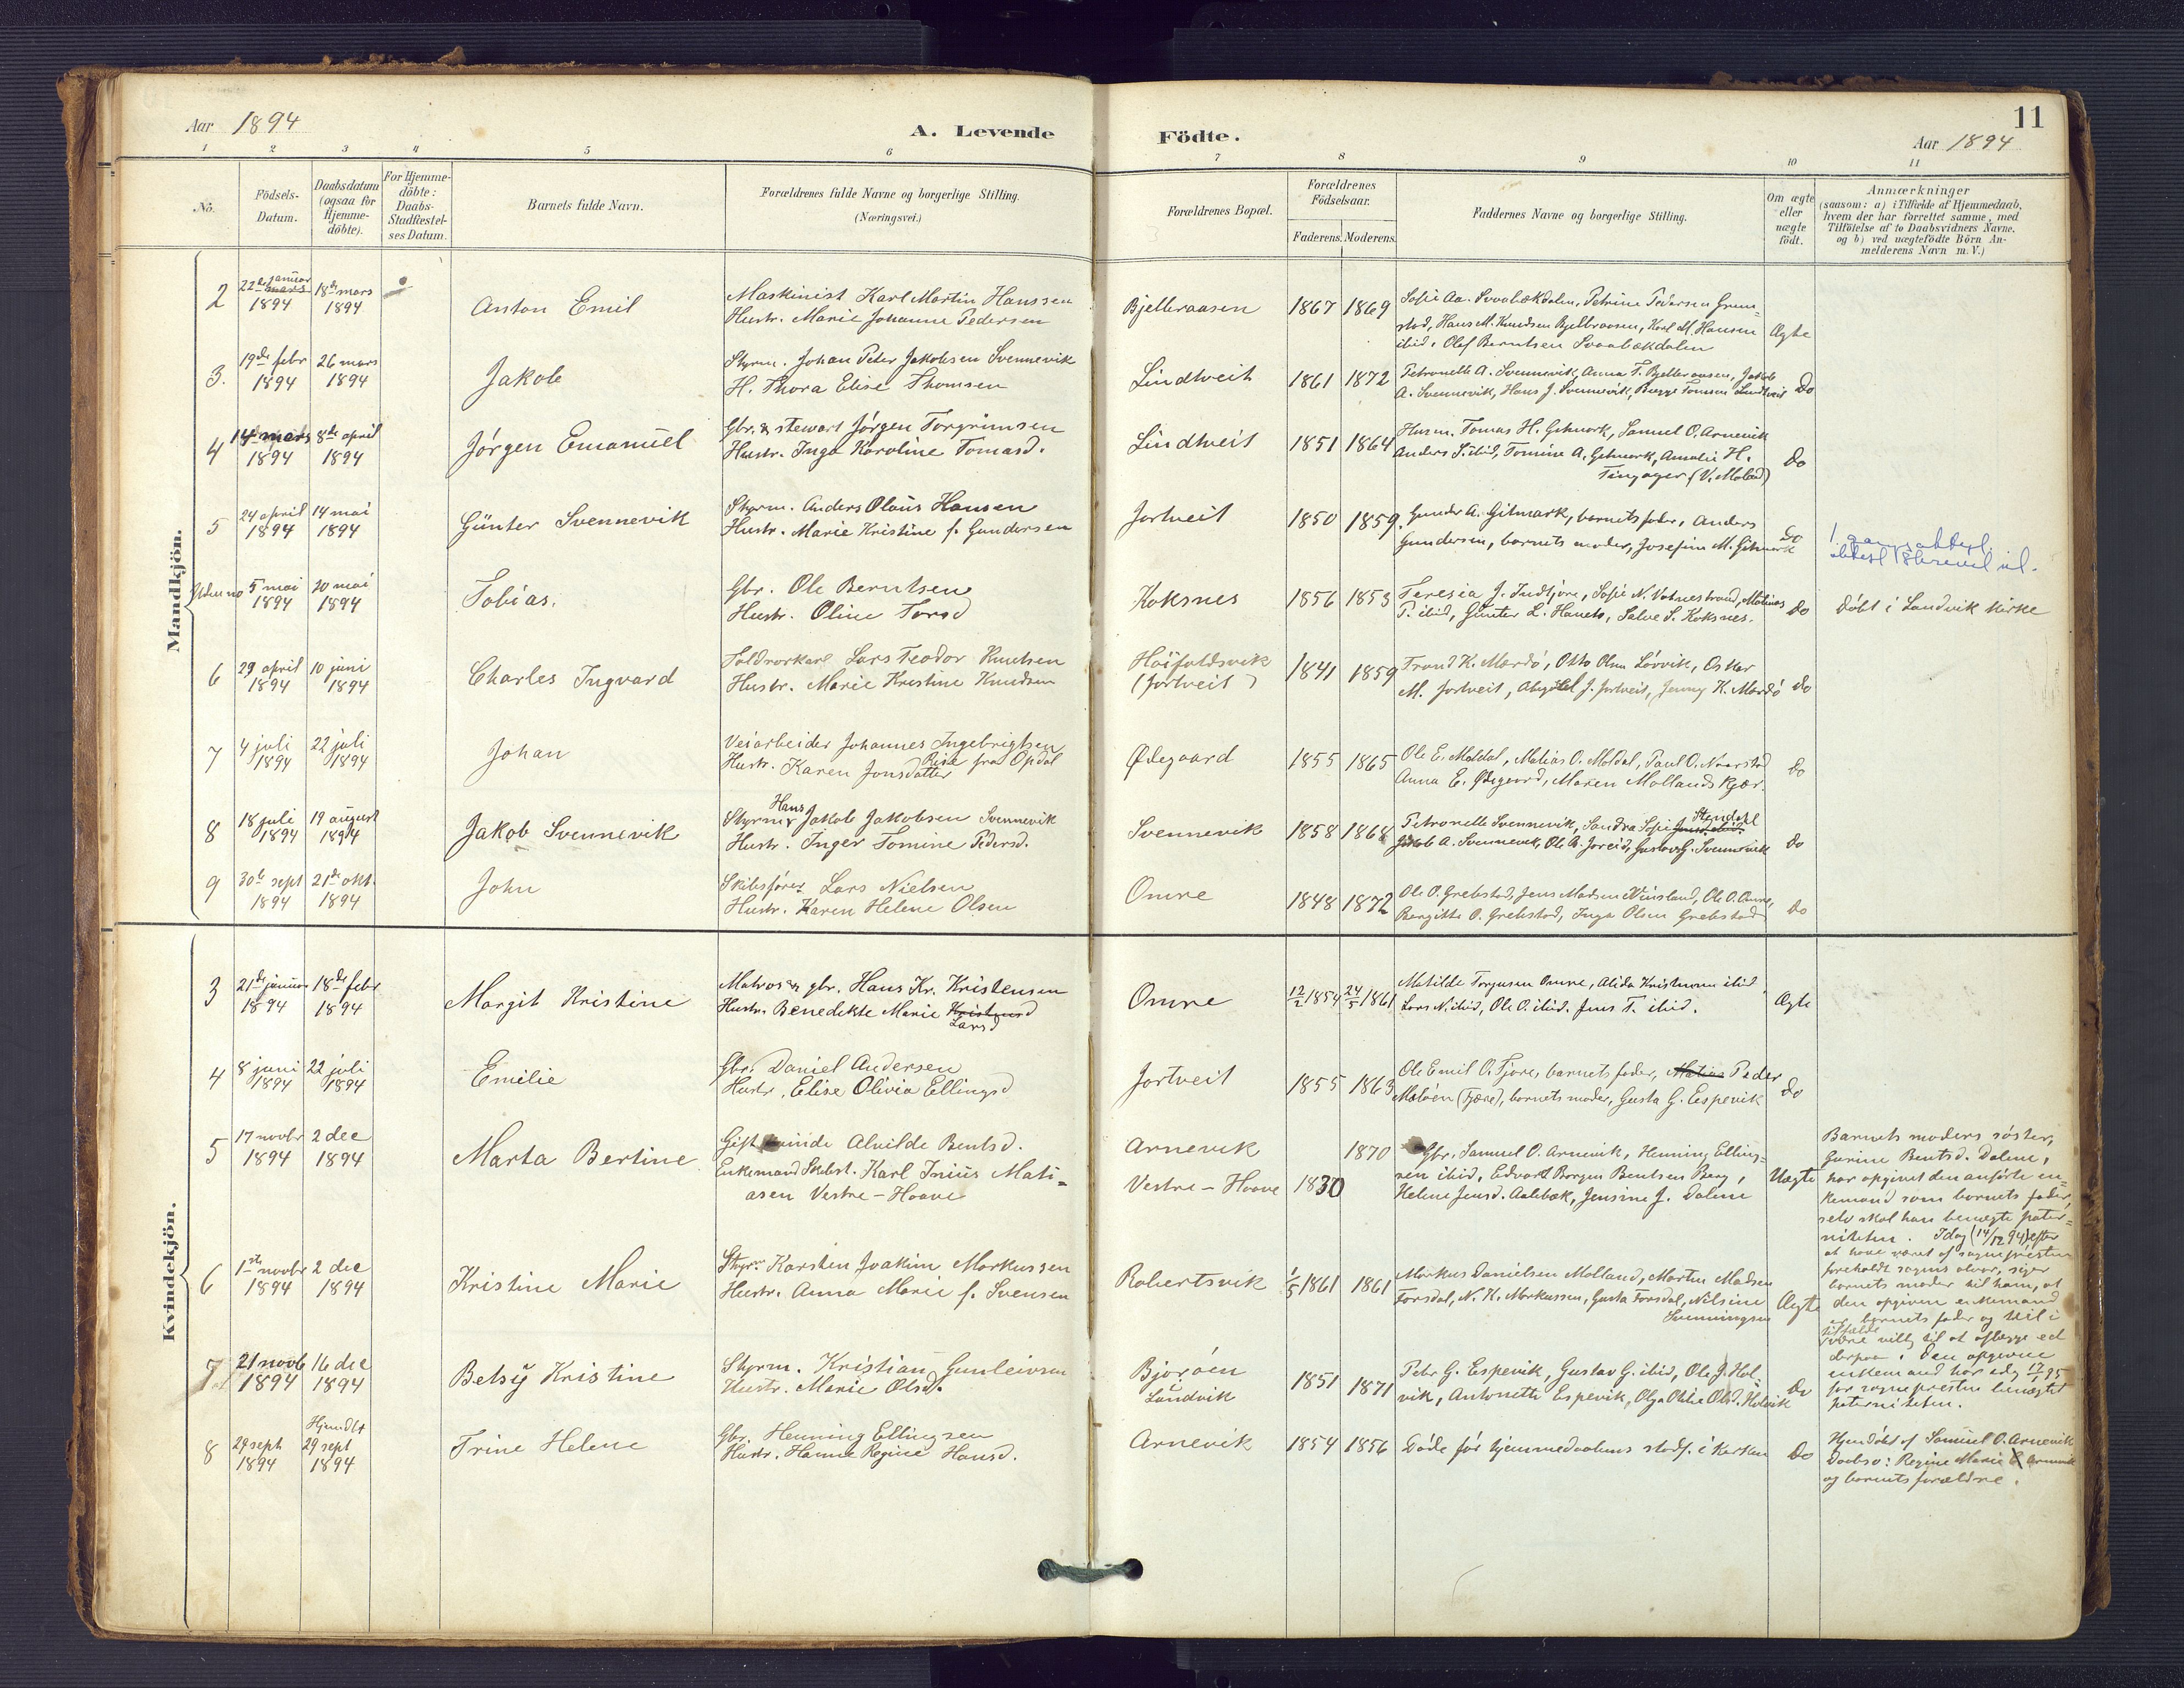 11
Aar 1894
A. Levende
Födte.
Aar 1894
1 2 3 4 5 6 7 8 9 10 11
No.
Födsels-
Datum.
Daabsdatum
(ogsaa for
Hjemme-
döbte).
For Hjemme-
döbte:
Daabs-
Stadfæstel-
ses Datum.
Barnets fulde Navn.
Forældrenes fulde Navne og borgerlige Stilling.
(Næringsvei.)
Forældrenes Bopæl.
Forældrenes
Födselsaar.
Faderens. Moderens.
Faddernes Navne og borgerlige Stilling.
Om ægte
eller
uægte
födt.
Anmærkninger
(saasom: a) i Tilfælde af Hjemmedaab,
hvem der har forrettet samme, med
Tilföielse af to Daabsvidners Navne.
og b) ved uægtefödte Börn An-
melderens Navn m. V.)
Mandkjön.
2
22de januar
mars
1894
18de mars
1894
Anton Emil
Maskinist Karl Martin Hanssen
Hustr. Marie Johanne Pedersen
Bjelleraasen
1867 1869
Sofie Aa. Svaabækdalen, Petrine Pedersen Grim-
stad, Hans M. Knudsen Bjelbraasen, Karl M. Hansen
ibid, Olef Berntsen Svaabækdalen
Ægte
3.
19de febr
1894
26 mars
1894
Jakob
Styrm. Johan Peter Jakobsen Svennevik
H. Thora Elise Thomsen
Lindtveit
1861 1872
Petronelle A. Svennevik, Anna T. Bjelleraasen, Jakob
A. Svennevik, Hans J. Svennevik, Berge Tomsen Lindtveit
Do
4
14de mars
1894
8de april
1894
Jørgen Emanuel
Gbr. & stewart Jørgen Torgrimsen
Hustr. Inga Karoline Tomasd.
Lindtveit
1851 1864
Husm. Tomas H. Gitmark, Samuel O. Arnevik
Anders S. ibid, Tomine A. Gitmark, Amalie H.
Tingager (V. Moland)
Do
5
24 april
1894
14 mai
1894
Günter Svennevik
Styrm. Anders Olaus Hansen
Hustr. Marie Kristine f. Gundersen
Jortveit
1850 1859
Gunder A. Gitmark, barnets fader, Anders
Gundersen, barnets moder, Josefine M. Gitmark
Do
Uden no
5 mai
1894
20 mai
1894
Tobias.
Gbr. Ole Berntsen
Hustr. Oline Torsd
Koksnes
1856 1853
Teresia J. Indtjore, Sofie N. Vatnestrand, Matias
T. ibid, Günter L. Hanets, Salve S. Koksnes.
Do
Døbt i Landvik kirke
6
29 april
1894
10 juni
1894
Charles Ingvard
Toldrorkarl Lars Teodor Knutsen
Hustr. Marie Kristine Knudsen
Høifoldsvik
(Jortveit)
1841 1859
Trond K. Mærdø, Otto Olsen Lørvik, Oskar
M. Jortveit, Abigael J. Jortveit, Jenny K. Mærdø
Do
7
4 juli
1894
22 juli
1894
Johan
Veiarbeider Johannes Ingebrigtsen
Rise
Hustr. Karen Jonsdatter fra Opdal
Ødegaard
1855 1865
Ole E. Moldal, Matias O. Moldal, Paul O. Naarstad
Anna E. Ødegaard, Maren Mollandskjær.
Do
8
18 juli
1894
19 august
1894
Jakob Svennevik
Hans
Styrm. Jakob Jakobsen Svennevik
Hustr. Inger Tomine Pedersd.
Svennevik
1858 1868
Stendahl
Petronelle Svennevik, Sandra Sofie
Jakob A. Svennevik, Ole A. Joreid, Gustav G. Svennevik
Do
9
30te sept
1894
21de okt.
1894
John
Skibsfører Lars Nielsen
Hustr. Karen Helene Olsen
Omre
1848 1872
Ole O. Grebstad, Jens Madsen Vinsland, Ole O. Omre,
Bergitte O. Grebstad, Inga Olsen Grebstad
Do
Kvindekjön.
3
21de januar
1894
18de febr
1894
Margit Kristine
Matros & gbr. Hans Kr. Kristensen
Hustr. Benedikte Marie Kristensd
Larsd
Omre
12/2 1854 24/5 1861
Matilde Torjusen Omre, Alida Kristensen ibid
Lars N. ibid, Ole O. ibid. Jens T. ibid.
Ægte
4
8 juni
1894
22 juli
1894
Emilie
Gbr. Daniel Andersen
Hustr. Elise Olivia Ellingsd
Jortveit
1855 1863
Ole Emil O. Fjore, barnets fader, Matias Peder
Maløen (Fjære), barnets moder, Gusta G. Espevik
Do
5
17 novbr
1894
2 dec
1894
Marta Bertine
Gift kvinde Alvilde Bentsd.
Enkemand Skibst. Karl Inius Mati-
asen Vestre-Haave
Arnevik
Vestre-Haave
1830
1870
Gbr. Samuel O. Arnevik, Henning Elling-
sen ibid, Edvard Bergen Bentsen Berg,
Helene Jensd. Aalebæk, Jensine J. Dalene
Uægte
Barnets moders søster,
Gurine Bentsd. Dalene,
har opgivet den anførte en-
kemand som barnets fader,
selv skal han benægte pater-
niteten. Idag (14/12 94) efter
at have været af sognepresten
foreholdt sagens alvor, siger
barnets moder til ham, at
den opgivne enkemand
er barnets fader og vil i
tilfælde
være villig til at aflægge ed
derpaa. Den opgivne
enkemand har idag 17/1 95
for sognepresten benægtet
paterniteten.
6
1ste novbr
1894
2 dec
1894
Kristine Marie
Styrm. Karsten Joakim Markussen
Hustr. Anna Marie f. Svensen
Robertsvik
1/5 1861 1861
Markus Danielsen Molland, Martin Madsen
Forsdal, N. K. Markussen, Gusta Forsdal, Nilsine
Svenningsen
Ægte
7
21 novb
1894
16 dec
1894
Betsy Kristine
Styrm. Kristian Gunleivsen
Hustr. Marie Olsd.
Bjorøen
Landvik
1851 1871
Peder G. Espevik, Gustav G. ibid, Ole J. Hol-
vik, Antonette Espevik, Olga Otilie Olsd. Holvik
Do
8
29 sept
1894
Hjemdbt
29 sept
1894
Trine Helene
Gbr. Henning Ellingsen
Hustr. Hanne Regine Hansd.
Arnevik
1854 1856
Døde før hjemmedaabens stadf. i kirken
Do
Hjemdøbt af Samuel O. Arnevik
Daabsv: Regine Marie Arnevik
og barnets forældre.